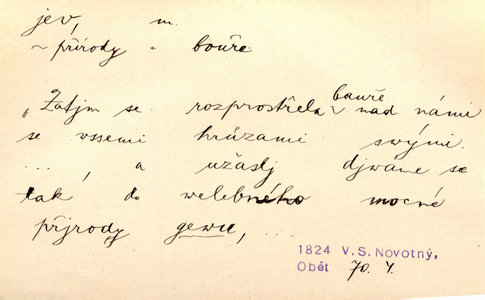 jev, m.
~ přírody - bouře
"Zatjm se rozprostřela bauře nad námi
se wssemi hrůzami swými.
..., a užaslj djwáme se
tak do welebného mocné
přjrody gewu, ...
1824 V.S.Novotný,
Obět 70. 4.